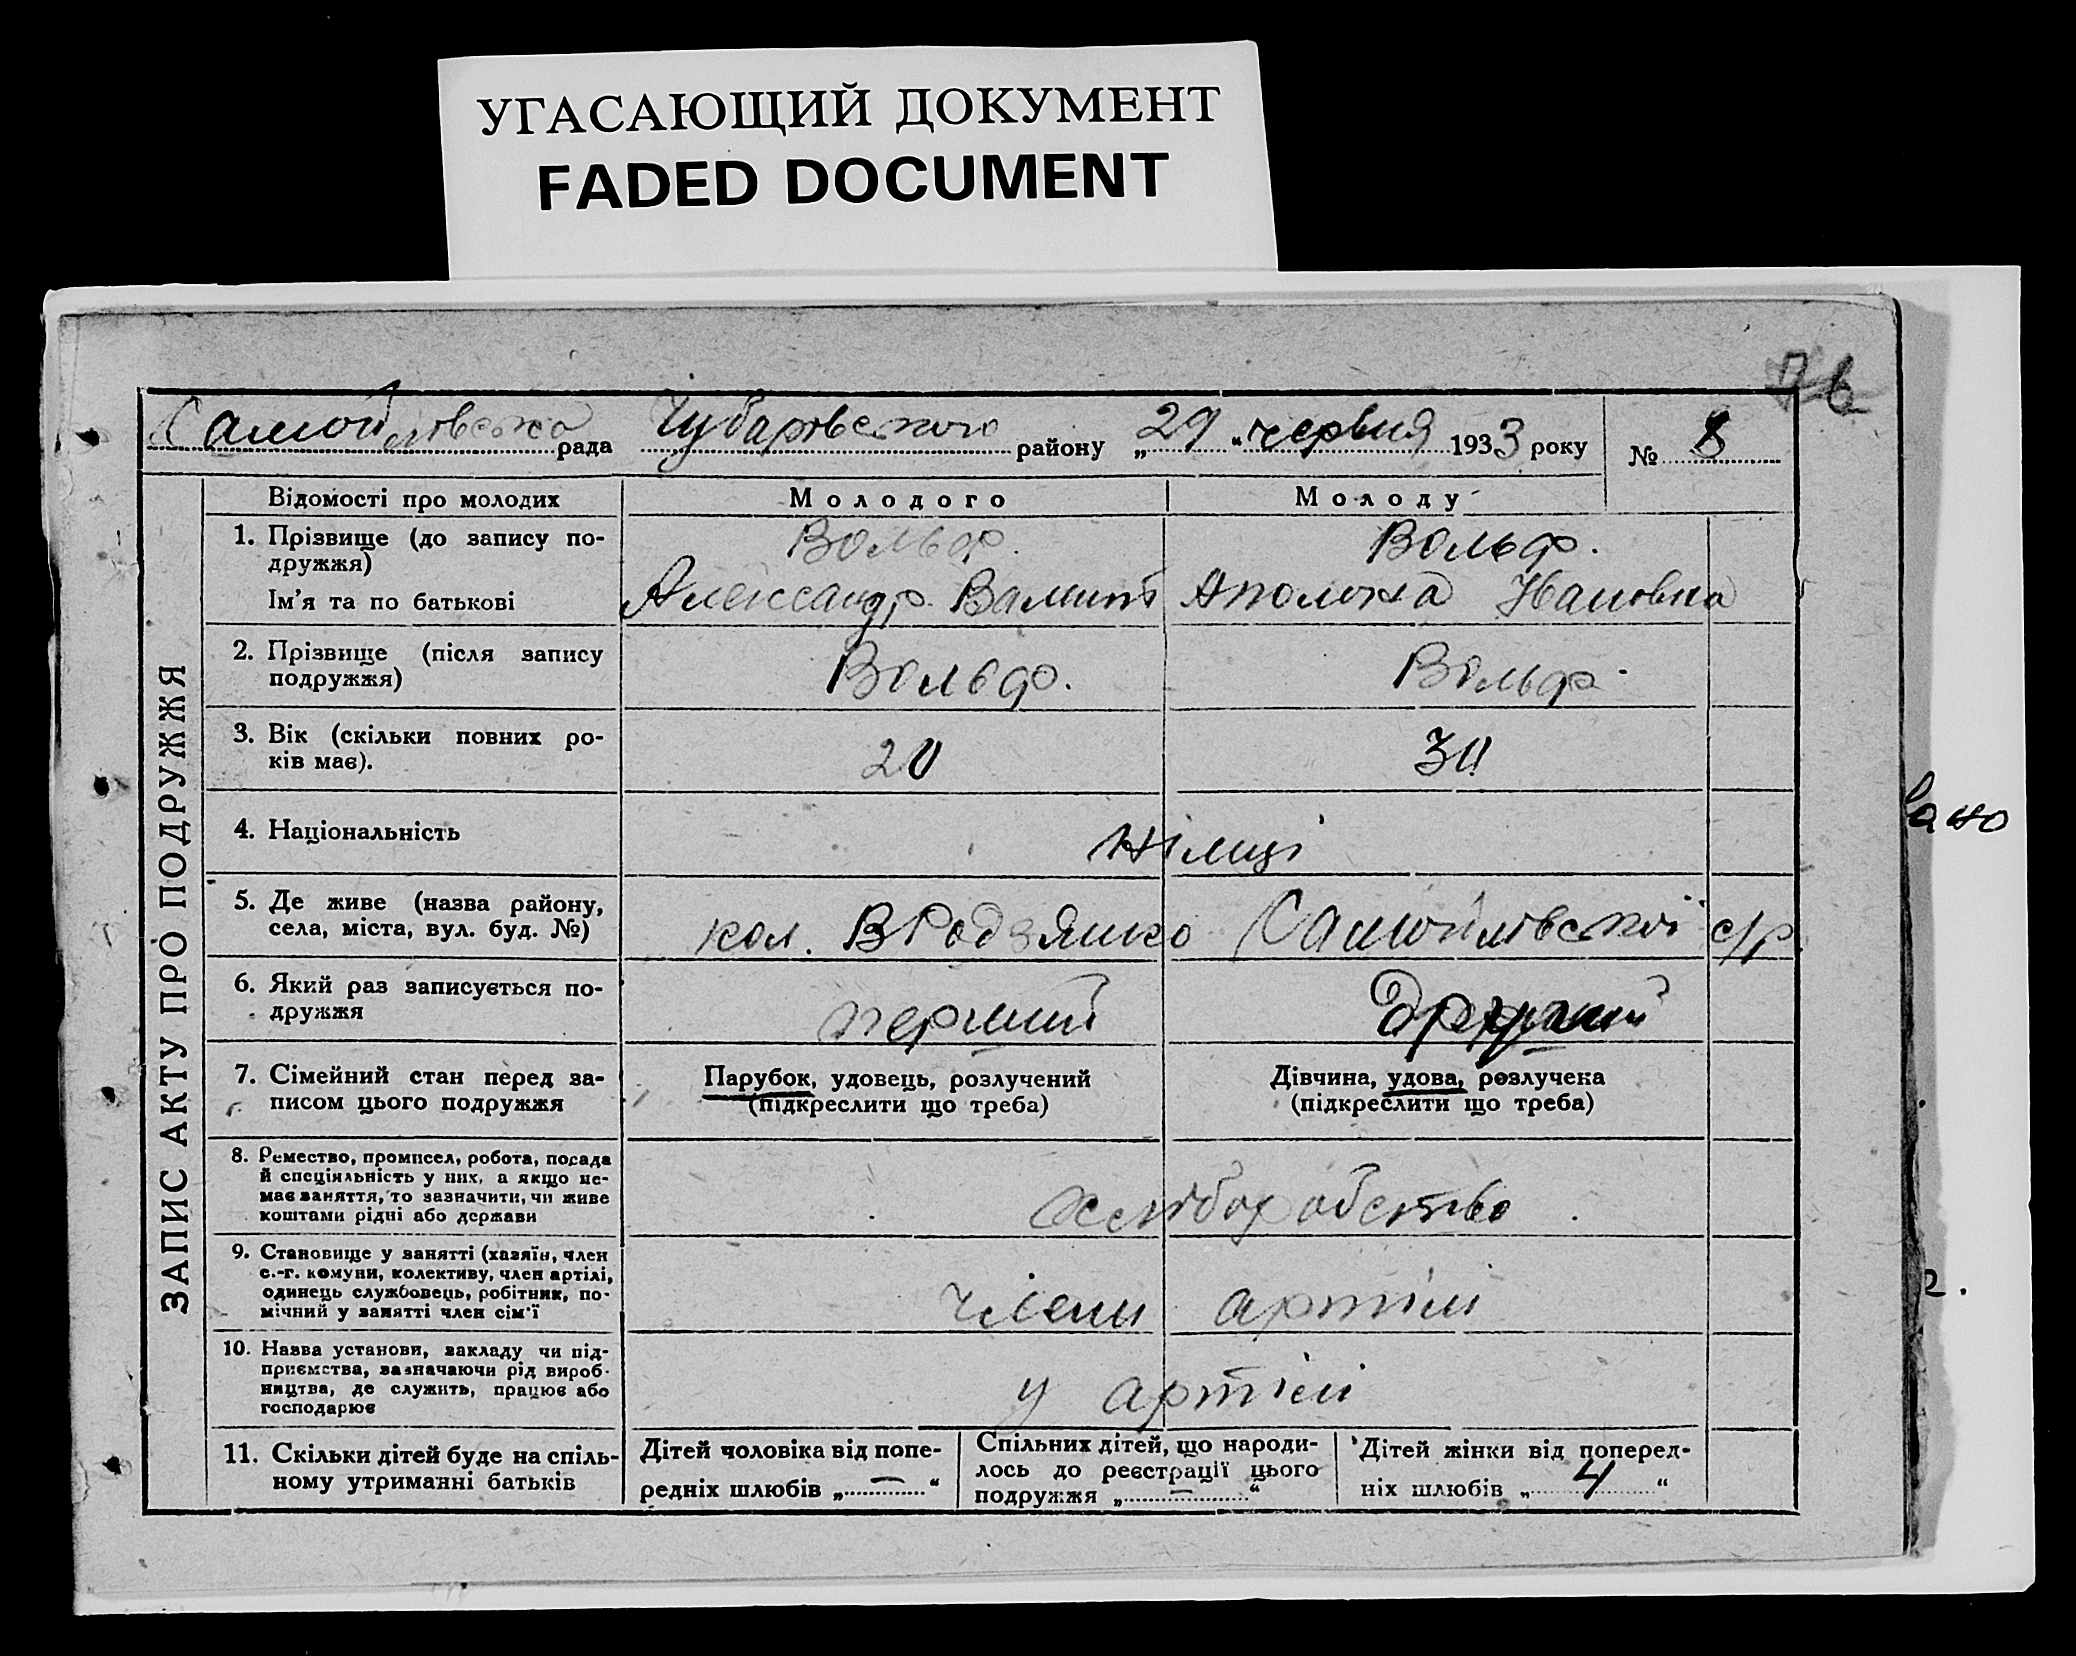 УГАСАЮЩИЙ ДОКУМЕНТ
FADED DOCUMENT
Самойловська рада Чубаровського району „29“ червня 1933 року № 8
ЗАПИС АКТУ ПРО ПОДРУЖЖЯ
Відомості про молодих Молодого Молоду
1. Прізвище (до запису по-
дружжя)
Вольф. Вольф.
Ім'я та по батькові Александр Ивановна
2. Прізвище (після запису
подружжя)
Вольф. Вольф.
3. Вік (скільки повних ро-
ків має).
20 30
4. Національність
німці
5. Де живе (назва району,
села, міста, вул. буд. №)
кол. ВРодзянко Самойловської с/р.
6. Який раз записується по-
дружжя
перший Другий
7. Сімейний стан перед за-
писом цього подружжя
Парубок, удовець, розлучений
(підкреслити що треба)
Дівчина, удова, розлучена
(підкреслити що треба)
8. Ремество, промисел, робота, посада
й спеціяльність у них, а якщо не-
має заняття, то зазначити, чи живе
коштами рідні або держави
хліборобство
9. Становище у занятті (хазяїн, член
с.-г. комуни, колективу, член артілі,
одинець службовець, робітник, по-
мічний у занятті член сім'ї
члени артілі
10. Назва установи, закладу чи під-
приємства, зазначаючи рід вироб-
ництва, де служить, працює або
господарює
у артілі
11. Скільки дітей буде на спіль-
ному утриманні батьків
Дітей чоловіка від попе-
редніх шлюбів „—“
Спільних дітей, що народи-
лось до реєстрації цього
подружжя „—“
Дітей жінки від поперед-
ніх шлюбів „4“